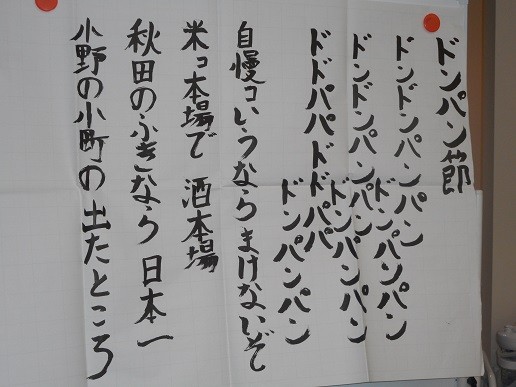 ドンパン節
ドンドンパンパン
ドンパンパン
ドンドンパンパン
ドンパンパン
ドドパパドドパパ
ドンパンパン
自慢コいうならまけないぞ
米コ本場で 酒本場
秋田のふきなら 日本一
小野の小町の土たところ